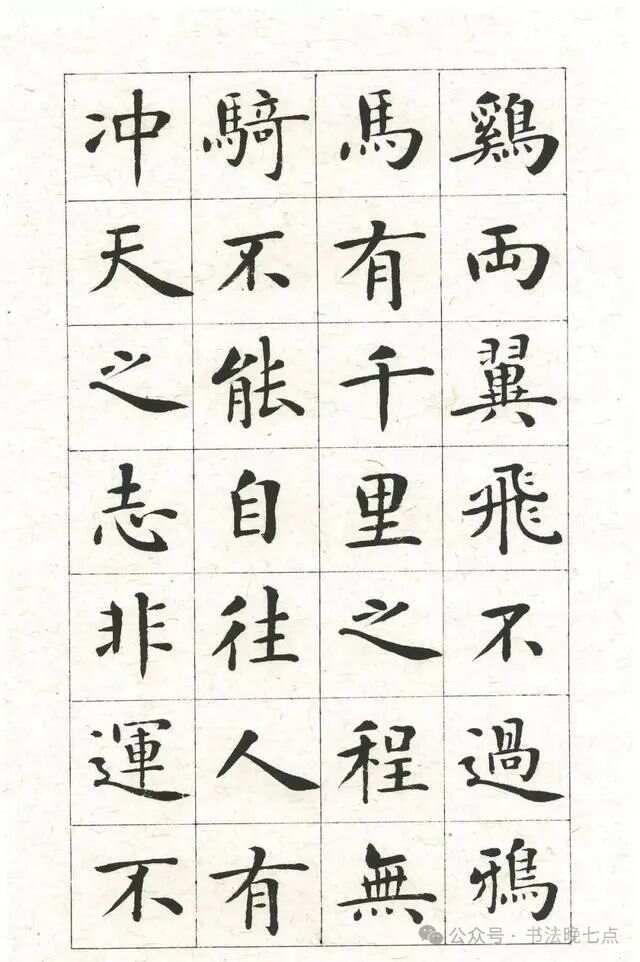 鷄兩翼飛不過鴉
馬有千里之程無
騎不能自往人有
冲天之志非運不
公众号·书法晚七点